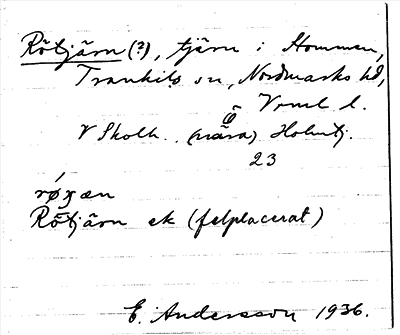 Rötjärn (?), tjärn i Hommen,
Trankils sn, Nordmarks hd,
Vrml l.
V Skolh. (nära) Holmtj.
23
røȷæn
Rötjärn ek (felplacerat)
E. Andersson 1936.